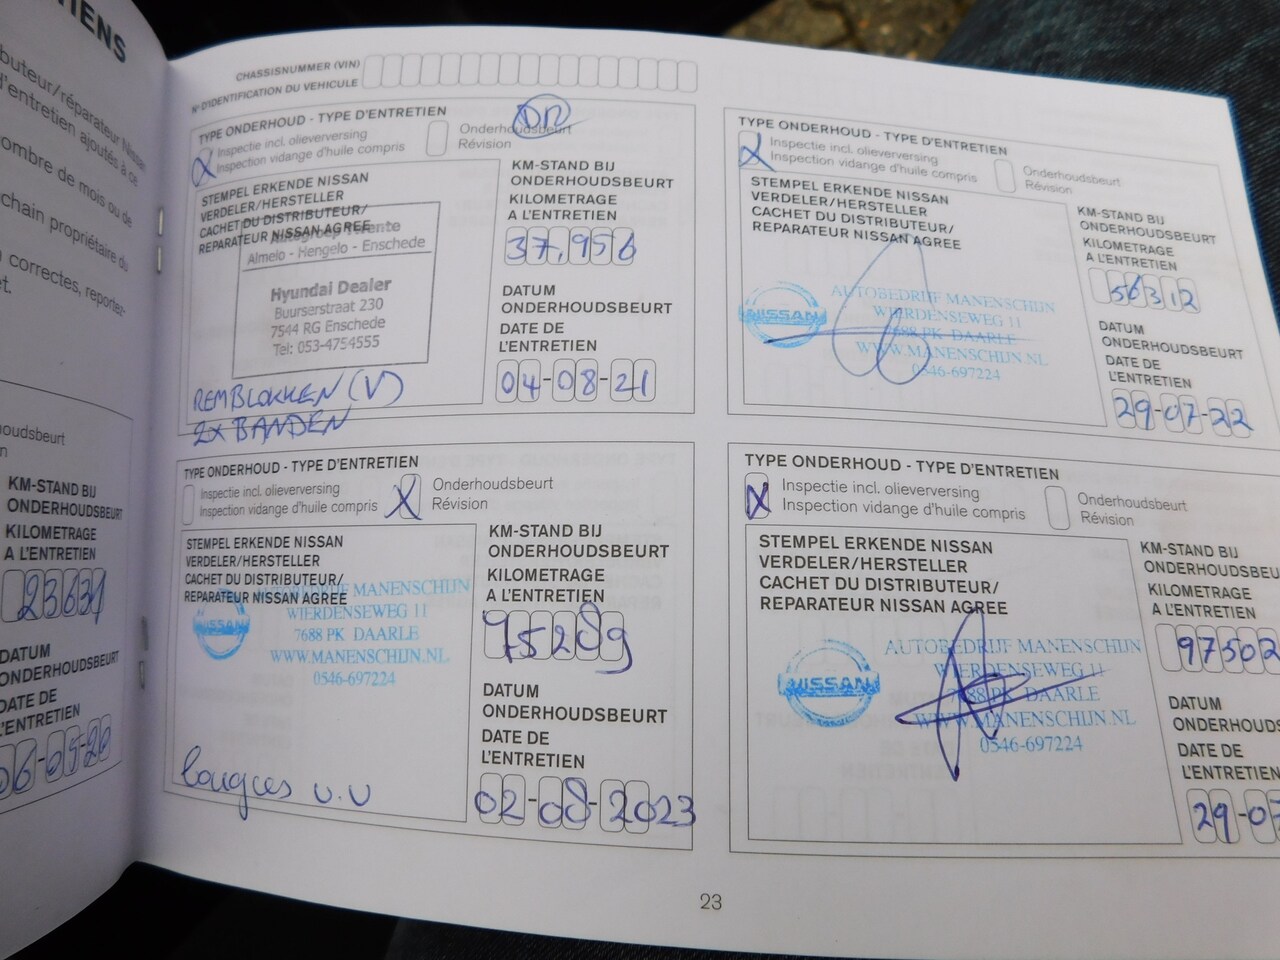 TIENS
buteur/réparateur Nissan
d'entretien ajoutés à ce
ombre de mois ou de
chain propriétaire du
correctes, reporter-
et.
oudsbeurt
n
KM-STAND BIJ
ONDERHOUDSBEURT
KILOMETRAGE
A L'ENTRETIEN
23631
DATUM
ONDERHOUDSBEURT
DATE DE
L'ENTRETIEN
CHASSISNUMMER (VIN)
N° D'IDENTIFICATION DU VEHICULE
TYPE ONDERHOUD - TYPE D'ENTRETIEN
X Inspectie incl. olieverversing
Inspection vidange d'huile compris
Onderhoudsbeurt
Révision
STEMPEL ERKENDE NISSAN
VERDELER/HERSTELLER
CACHET DU DISTRIBUTEUR/
REPARATEUR NISSAN AGREE
Almelo - Hengelo - Enschede
Hyundai Dealer
Buurserstraat 230
7544 RG Enschede
Tel: 053-4754555
REMBLOKKEN (V)
2x BANDEN
KM-STAND BIJ
ONDERHOUDSBEURT
KILOMETRAGE
A L'ENTRETIEN
37.956
DATUM
ONDERHOUDSBEURT
DATE DE
L'ENTRETIEN
04-08-21
TYPE ONDERHOUD - TYPE D'ENTRETIEN
X Inspectie incl. olieverversing
Inspection vidange d'huile compris
Onderhoudsbeurt
Révision
STEMPEL ERKENDE NISSAN
VERDELER/HERSTELLER
CACHET DU DISTRIBUTEUR/
REPARATEUR NISSAN AGREE
NISSAN
AUTOBEDRIJF MANENSCHIJN
WIERDENSEWEG 11
7688 PK DAARLE
WWW.MANENSCHIJN.NL
0546-697224
KM-STAND BIJ
ONDERHOUDSBEURT
KILOMETRAGE
A L'ENTRETIEN
56312
DATUM
ONDERHOUDSBEURT
DATE DE
L'ENTRETIEN
29-07-22
TYPE ONDERHOUD - TYPE D'ENTRETIEN
Inspectie incl. olieverversing
Inspection vidange d'huile compris
X Onderhoudsbeurt
Révision
STEMPEL ERKENDE NISSAN
VERDELER/HERSTELLER
CACHET DU DISTRIBUTEUR/
REPARATEUR NISSAN AGREE
NISSAN
AUTOBEDRIJF MANENSCHIJN
WIERDENSEWEG 11
7688 PK DAARLE
WWW.MANENSCHIJN.NL
0546-697224
v.v
KM-STAND BIJ
ONDERHOUDSBEURT
KILOMETRAGE
A L'ENTRETIEN
75289
DATUM
ONDERHOUDSBEURT
DATE DE
L'ENTRETIEN
02-08-2023
TYPE ONDERHOUD - TYPE D'ENTRETIEN
X Inspectie incl. olieverversing
Inspection vidange d'huile compris
Onderhoudsbeurt
Révision
STEMPEL ERKENDE NISSAN
VERDELER/HERSTELLER
CACHET DU DISTRIBUTEUR/
REPARATEUR NISSAN AGREE
NISSAN
AUTOBEDRIJF MANENSCHIJN
WIERDENSEWEG 11
7688 PK DAARLE
WWW.MANENSCHIJN.NL
0546-697224
KM-STAND BIJ
ONDERHOUDSBEU
KILOMETRAGE
A L'ENTRETIEN
97502
DATUM
ONDERHOUDS
DATE DE
L'ENTRETIEN
29-07
23